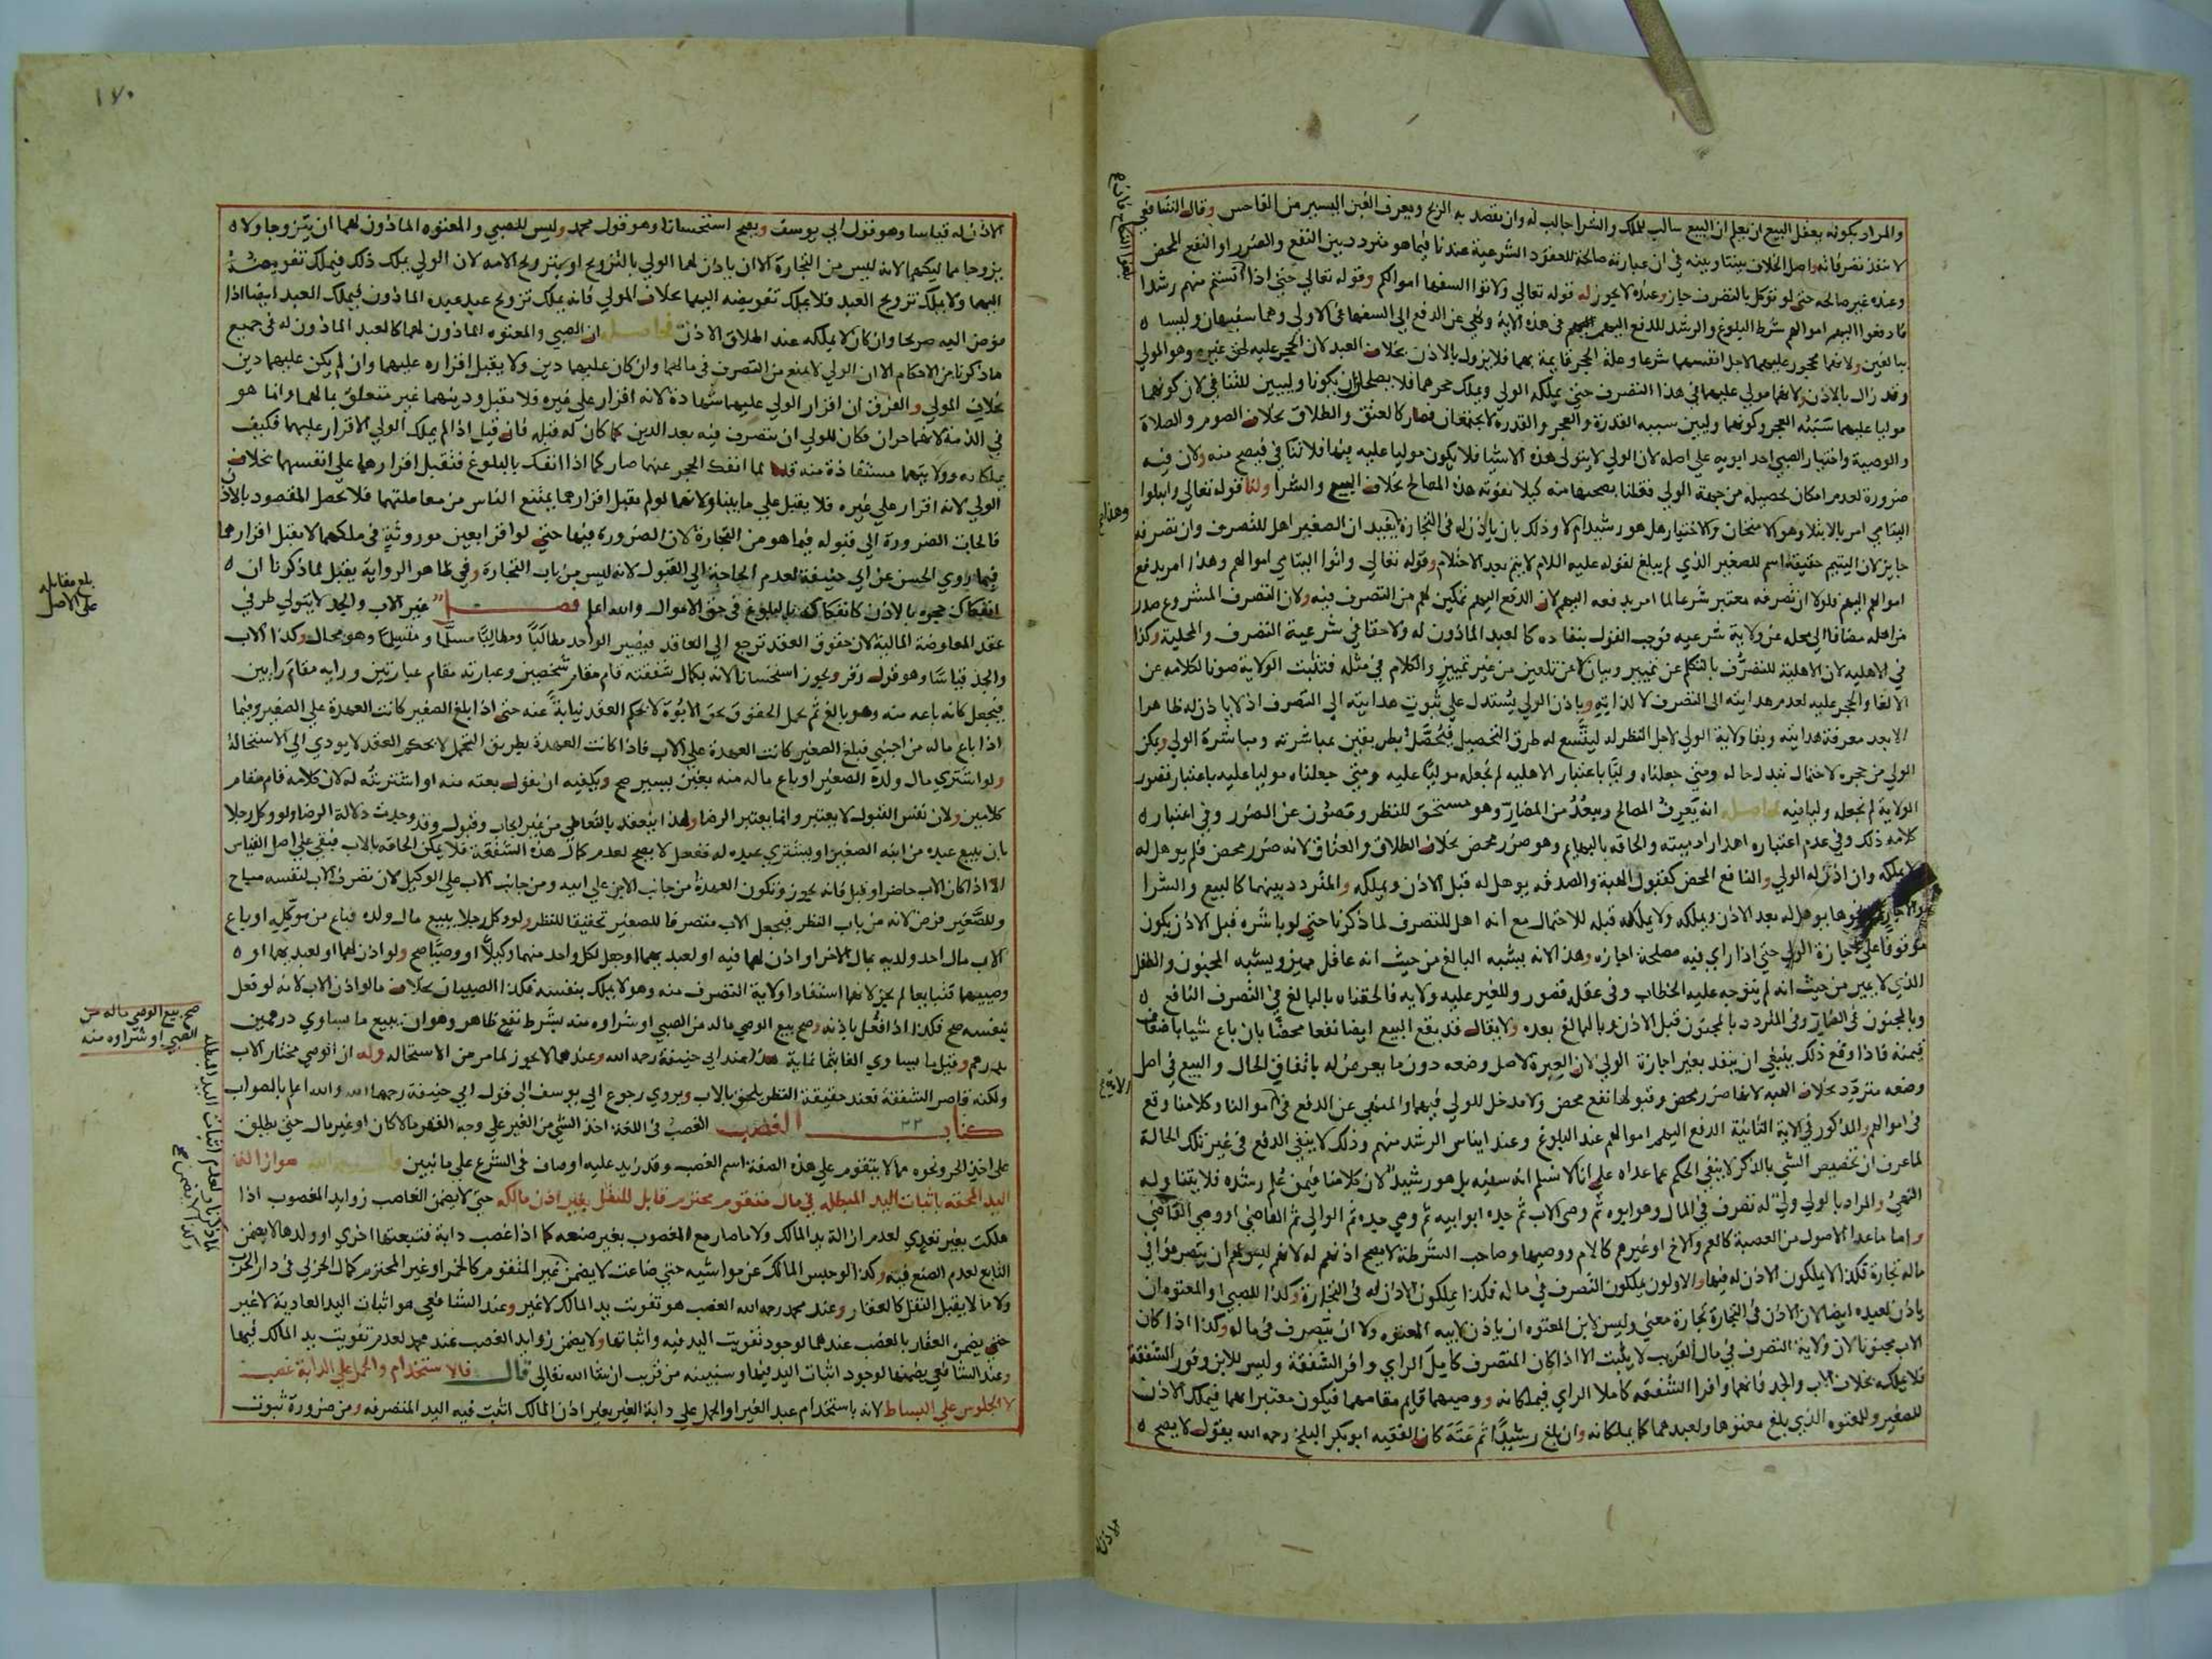 والمراد بكونه يعقل البيع ان يعلم ان البيع سالب للملك والشرا جالب له وان يقصد به الربح ويعرف الغبن اليسير من الفاحش وقال الشافعي
لا تنفذ تصرفاته واصل الخلاف بيننا وبينه في ان عبارته صالحة للعقود الشرعية عندنا فيما هو متردد بين النفع والضرر او النفع المحض
وعنده غير صالحه حتى لو توكل بالتصرف جاز وعنده لا يجوز له قوله تعالى ولا توتوا السفها اموالكم وقوله تعالى حتى اذا انستم منهم رشدا
فادفعوا اليهم اموالهم شرط البلوغ والرشد للدفع اليهم في هذه الاية ونهى عن الدفع الى السفها في الاولى وهما سفيهان وليسا
ببالغين ولانهما محجور عليهما لاجل انفسهما شرعا وعلة الحجر قايمة بهما فلا يزول بالاذن بخلاف العبد لان الحجر عليه لحق غيره وهو المولى
وقد زال بالاذن ولانهما مولى عليهما في هذا التصرف حتى يملكه الولي ويملك حجرهما فلا يصلحان ان يكونا وليين للتنافي لان كونهما
موليا عليهما سببه العجز وكونهما وليين سببه القدرة والعجز والقدرة لا يجتمعان فصار كالعتق والطلاق بخلاف الصوم والصلاة
والوصية واختيار الصبي احد ابويه على اصله لان الولي لا يتولى هذه الاشيا فلا يكون موليا عليه فيها فلا تنافي فيصح منه ولان فيه
ضرورة لعدم امكان تحصيله من جهة الولي فقلنا بصحتها منه كيلا تفوته هذه المصالح بخلاف البيع والشرا ولنا قوله تعالى وابتلوا
اليتامى امر بالابتلا وهو الامتحان والاختبار هل هو رشيد ام لا وذلك بان ياذن له في التجارة يفيد ان الصغير اهل للتصرف وان تصرفه
جايز لان اليتيم حقيقة اسم للصغير الذي لم يبلغ لقوله عليه السلام لا يتم بعد الاحتلام وقوله تعالى واتوا اليتامى اموالهم وهذا امر بدفع
اموالهم اليهم فلولا ان تصرفه معتبر شرعا لما امر بدفعه اليهم لان الدفع اليهم تمكين لهم من التصرف فيه ولان التصرف المشروع صدر
من اهله مضافا الى محله عن ولاية شرعيه فوجب القول بنفاذه كالعبد الماذون له ولا خفا في شرعية التصرف والمحلية وكذا
في الاهليه لان الاهلية للتصرف بالتكلم عن تمييز وبيان لا عن تلقين من غير تمييز والكلام في مثله فتثبت الولاية صونا لكلامه عن
الالغا والحجر عليه لعدم هدايته الى التصرف لا لذاته وباذن الولي يستدل على ثبوت هدايته الى التصرف اذ لا ياذن له ظاهرا
الا بعد معرفة هدايته وبقا ولاية الولي لاجل النظر له ليتسع له طرق التحصيل فيحصل بطريقين بمباشرته ومباشرة الولي ويمكن
الولي من حجره لاحتمال تبدل حاله ومتى جعلناه وليا باعتبار الاهليه لم نجعله موليا عليه ومتى جعلناه موليا عليه باعتبار قصور
الولاية لم نجعله وليا فيه فحاصله انه يعرف المصالح ويبعد من المضار وهو مستحق للنظر ومصون عن الضرر وفي اعتبار
كلامه ذلك وفي عدم اعتباره اهدار ادميته والحاقه بالبهايم وهو ضرر محض بخلاف الطلاق والعتاق لانه ضرر محض فلم يوهل له
لا يملكه وان اذن له الولي والنافع المحض كقبول الهبة والصدقه يوهل له قبل الاذن ويملكه والمتردد بينهما كالبيع والشرا
والاجارة ونحوها يوهل له بعد الاذن ويملكه ولا يملكه قبله للاحتمال مع انه اهل للتصرف لما ذكرنا حتى لو باشره قبل الاذن يكون
موقوفا على اجازة الولي حتى اذا راى فيه مصلحة اجازه وهذا لانه يشبه البالغ من حيث انه عاقل مميز ويشبه المجنون والطفل
الذي لا يميز من حيث انه لم يتوجه عليه الخطاب وفي عقله قصور وللغير عليه ولايه فالحقناه بالبالغ في التصرف النافع
وبالمجنون في الضار وفي المتردد بالمجنون قبل الاذن وبالبالغ بعده ولا يقال قد يقع البيع ايضا نفعا محضا بان باع شيا باضعاف
قيمته فاذا وقع ذلك ينبغي ان ينفذ بغير اجازة الولي لان العبرة لاصل وضعه دون ما يعرض له باتفاق الحال والبيع في اصل
وضعه متردد بخلاف الهبه لانها ضرر محض وقبولها نفع محض ولا مدخل للولي فيهما والمنهي عن الدفع في اموالنا وكلامنا وقع
في اموالهم والمذكور في الاية الثانية الدفع اليهم اموالهم عند البلوغ وعند ايناس الرشد منهم وذلك لا ينفي الدفع في غير تلك الحالة
لما عرف ان تخصيص الشي بالذكر لا ينفي الحكم عما عداه على انا لا نسلم انه سفيه بل هو رشيد لان كلامنا فيمن علم رشده فلا يتناوله
النهي والمراد بالولي ولي له تصرف في المال وهو ابوه ثم وصي الاب ثم جده ابو ابيه ثم وصي جده ثم الوالي ثم القاضي او وصي القاضي
واما ما عدا الاصول من العصبة كالعم والاخ او غيرهم كالام ووصيها وصاحب الشرطة لا يصح اذنهم له لانهم ليس لهم ان يتصرفوا في
ماله تجارة فكذا لا يملكون الاذن له فيها والاولون يملكون التصرف في ماله فكذا يملكون الاذن له في التجارة وكذا للصبي او المعتوه ان
ياذن لعبده ايضا لان الاذن في التجارة تجارة معنى وليس لابن المعتوه ان ياذن لابيه المعتوه ولا ان يتصرف في ماله وكذا اذا كان
الاب مجنونا لان ولاية التصرف في مال القريب لا يثبت الا اذا كان المتصرف كامل الراي وافر الشفقة وليس للابن وفور الشفقة
فلا يملكه بخلاف الاب والجد فانهما وافرا الشفقه كاملا الراي فيملكانه ووصيهما قايم مقامهما فيكون معتبرا بهما فيملك الاذن
للصغير وللمعتوه الذي بلغ معتوها ولعبدهما كما يملكانه وان بلغ رشيدا ثم عته كان الفقيه ابو بكر البلخي رحمه الله يقول لا يصح
الاذن
١٧٠
الاذن له قياسا وهو قول ابي يوسف ويصح استحسانا وهو قول محمد وليس للصبي والمعتوه الماذون لهما ان يتزوجا ولا
يزوجا مماليكهما لانه ليس من التجارة الا ان ياذن لهما الولي بالتزويج او بتزويج الامه لان الولي يملك ذلك فيملك تفويضه
اليهما ولا يملك تزويج العبد فلا يملك تفويضه اليهما بخلاف المولى فانه يملك تزويج عبد عبده الماذون فيملك العبد ايضا اذا
فوض اليه صريحا وان كان لا يملكه عند اطلاق الاذن فحاصله ان الصبي والمعتوه الماذون لهما كالعبد الماذون له في جميع
ما ذكرنا من الاحكام الا ان الولي لا يمنع من التصرف في مالهما وان كان عليهما دين ولا يقبل اقراره عليهما وان لم يكن عليهما دين
بخلاف المولى والفرق ان اقرار الولي عليهما شهادة لانه اقرار على غيره فلا يقبل ودينهما غير متعلق بمالهما وانما هو
في الذمة لانهما حران فكان للولي ان يتصرف فيه بعد الدين كما كان له قبله فان قيل اذا لم يملك الولي الاقرار عليهما فكيف
يملكانه وولايتهما مستفادة منه قلنا لما انفك الحجر عنهما صار كما اذا انفك بالبلوغ فنقبل اقرارهما على انفسهما بخلاف
الولي لانه اقرار على غيره فلا يقبل على ما بينا ولانهما لو لم يقبل اقرارهما يمتنع الناس من معاملتهما فلا يحصل المقصود بالاذن
فالجات الضرورة الى قبوله فيما هو من التجارة لان الضرورة فيها حتى لو اقرا بعين موروثة في ملكهما لا يقبل اقرارهما
فيما روى الحسن عن ابي حنيفة لعدم الحاجة الى القبول لانه ليس من باب التجارة وفي ظاهر الرواية يقبل لما ذكرنا ان
انفكاك حجره بالاذن كانفكاكه بالبلوغ في حق الاموال والله اعلم فصل غير الاب والجد لا يتولى طرفي
عقد المعاوضة المالية لان حقوق العقد ترجع الى العاقد فيصير الواحد مطالبا ومطالبا مسلما ومتسلما وهو محال وكذا الاب
والجد قياسا وهو قول زفر ويجوز استحسانا لانه بكمال شفقته قام مقام شخصين وعبارته مقام عبارتين ورايه مقام رايين
فيجعل كانه باعه منه وهو بالغ ثم تحمل الحقوق بحق الابوة لا بحكم العقد نيابة عنه حتى اذا بلغ الصغير كانت العهدة على الصغير وفيما
اذا باع ماله من اجنبي فبلغ الصغير كانت العهدة على الاب فاذا كانت العهدة بطريق التحمل لا بحكم العقد لا يودي الى الاستحالة
ولو اشترى مال ولده الصغير او باع ماله منه بغبن يسير صح ويكفيه ان يقول بعته منه او اشتريته له لان كلامه قام مقام
كلامين ولان نفس القبول لا يعتبر وانما يعتبر الرضا ولهذا ينعقد بالتعاطي من غير ايجاب وقبول وقد وجدت دلالة الرضا ولو وكل رجلا
بان يبيع عبده من ابنه الصغير او يشتري عبده له ففعل لا يصح لعدم كمال هذه الشفقة فلا يمكن الحاقه بالاب فبقي على اصل القياس
الا اذا كان الاب حاضرا وقبل فانه يجوز وتكون العهدة من جانب الابن على ابيه ومن جانب الاب على الوكيل لان تصرف الاب لنفسه مباح
وللصغير فرض لانه من باب النظر فيجعل الاب متصرفا للصغير تحقيقا للنظر ولو وكل رجلا ببيع مال ولده فباع من موكله او باع
الاب مال احد ولديه بمال الاخر او اذن لهما فيه او لعبديهما او جعل لكل واحد منهما وكيلا او وصيا صح ولو اذن لهما او لعبديهما او
وصييهما فتبايعا لم يجز لانهما استفادا ولاية التصرف منه وهو لا يملك بنفسه فكذا الصبيان بخلاف ما لو اذن الاب لانه لو فعل
بنفسه صح فكذا اذا فعل باذنه وصح بيع الوصي ماله من الصبي او شراوه منه بشرط نفع ظاهر وهو ان يبيع ما يساوي درهمين
بدرهم وقيل ما يساوي الفا بثمانماية هذا عند ابي حنيفة رحمه الله وعندهما لا يجوز لما مر من الاستحاله وله ان الوصي مختار الاب
ولكنه قاصر الشفقة فعند حقيقة النظر يلحق بالاب ويروى رجوع ابي يوسف الى قول ابي حنيفة رحمهما الله والله اعلم بالصواب
كتاب الغصب الغصب في اللغة اخذ الشي من الغير على وجه القهر مالا كان او غير مال حتى يطلق
على اخذ الحر ونحوه مما لا يتقوم على هذه الصفة اسم الغصب وقد زيد عليه اوصاف في الشرع على ما نبين هو ازالة
اليد المحقه باثبات اليد المبطله في مال متقوم محترم قابل للنقل بغير اذن مالكه حتى لا يضمن الغاصب زوايد المغصوب اذا
هلكت بغير تعدي لعدم ازالة يد المالك ولا ما صار مع المغصوب بغير صنعه كما اذا غصب دابة فتبعتها اخرى او ولدها لا يضمن
التابع لعدم الصنع فيه وكذا لو حبس المالك عن مواشيه حتى ضاعت لا يضمن غير المتقوم كالخمر او غير المحترم كمال الحربي في دار الحرب
ولا ما لا يقبل النقل كالعقار وعند محمد رحمه الله الغصب هو تفويت يد المالك لا غير وعند الشافعي هو اثبات اليد العادية لا غير
حتى يضمن العقار بالغصب عندهما لوجود تفويت اليد فيه واثباتها ولا يضمن زوايد الغصب عند محمد لعدم تفويت يد المالك فيها
وعند الشافعي يضمنها لوجود اثبات اليد فيها وسنبينه من قريب ان شا الله تعالى قال فالاستخدام والحمل على الدابة غصب
لا الجلوس على البساط لانه باستخدام عبد الغير او الحمل على دابة الغير بغير اذن المالك اثبت فيه اليد المتصرفه ومن ضرورة ثبوت
بلغ مقابله
على الاصل
صح بيع الوصي ماله من
الصبي او شراوه منه